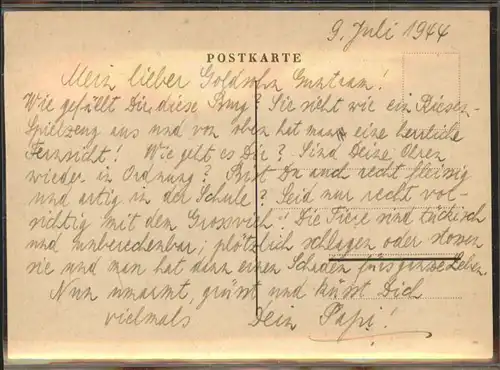 9. Juli 1944
POSTKARTE
Mein lieber Goldsohn Guntram!
Wie gefällt Dir diese Burg? Sie sieht wie ein Riesen-
Spielzeug aus und von oben hat man eine herrliche
Fernsicht! Wie geht es Dir? Sind Deine Ohren
wieder in Ordnung? Bist Du auch recht fleissig
und artig in der Schule? Seid nur recht vor-
sichtig mit dem Grossvieh. Die Tiere sind tückisch
und unberechenbar; plötzlich schlagen oder stossen
sie und man hat dann einen Schaden fürs ganze Leben.
Nun umarmt, grüsst und küsst Dich
vielmals Dein Papi!